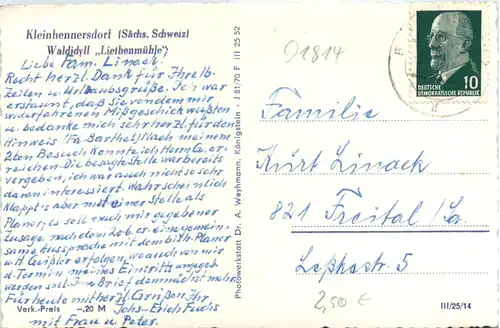 Kleinhennersdorf (Sächs. Schweiz)
Waldidyll „Liethenmühle"
Liebe Fam. Linack.
Recht herzl. Dank für Ihre lb.
Zeilen u. Urlaubsgrüße. Ich war
erstaunt, daß Sie von dem mir
widerfahrenen Mißgeschick wußten
u. bedanke mich sehr herzl. für den
Hinweis (Fa. Barthel) Nach meinem
2ten Besuch konnte ich Herrn G. er-
reichen Die besagte Stelle war bereits
vergeben, ich war auch nicht so sehr
daran interessiert. Wahrscheinlich
klappt es aber mit einer Stelle als
Planer, es soll nach mir gegebener
Zusage nach dem 20.6. er. eine gemein-
same Aussprache mit dem bish. Planer
u. H. Geißler erfolgen, wo auch von mir
d. Termin meines Eintritts angegeb.
werden soll. Im Brief demnächst mehr.
Für heute mit herzl. Grüßen Ihr
Johs-Erich Fuchs
mit Frau u. Peter.
Verk.-Preis -,20 M
Photowerkstatt Dr. A. Weyhmann, Königstein · J 81/70 F III 25 52
01814
DEUTSCHE
DEMOKRATISCHE REPUBLIK
10
Familie
Kurt Linack
821 Freital / Sa.
Leßkestr. 5
2,50 €
III/25/14